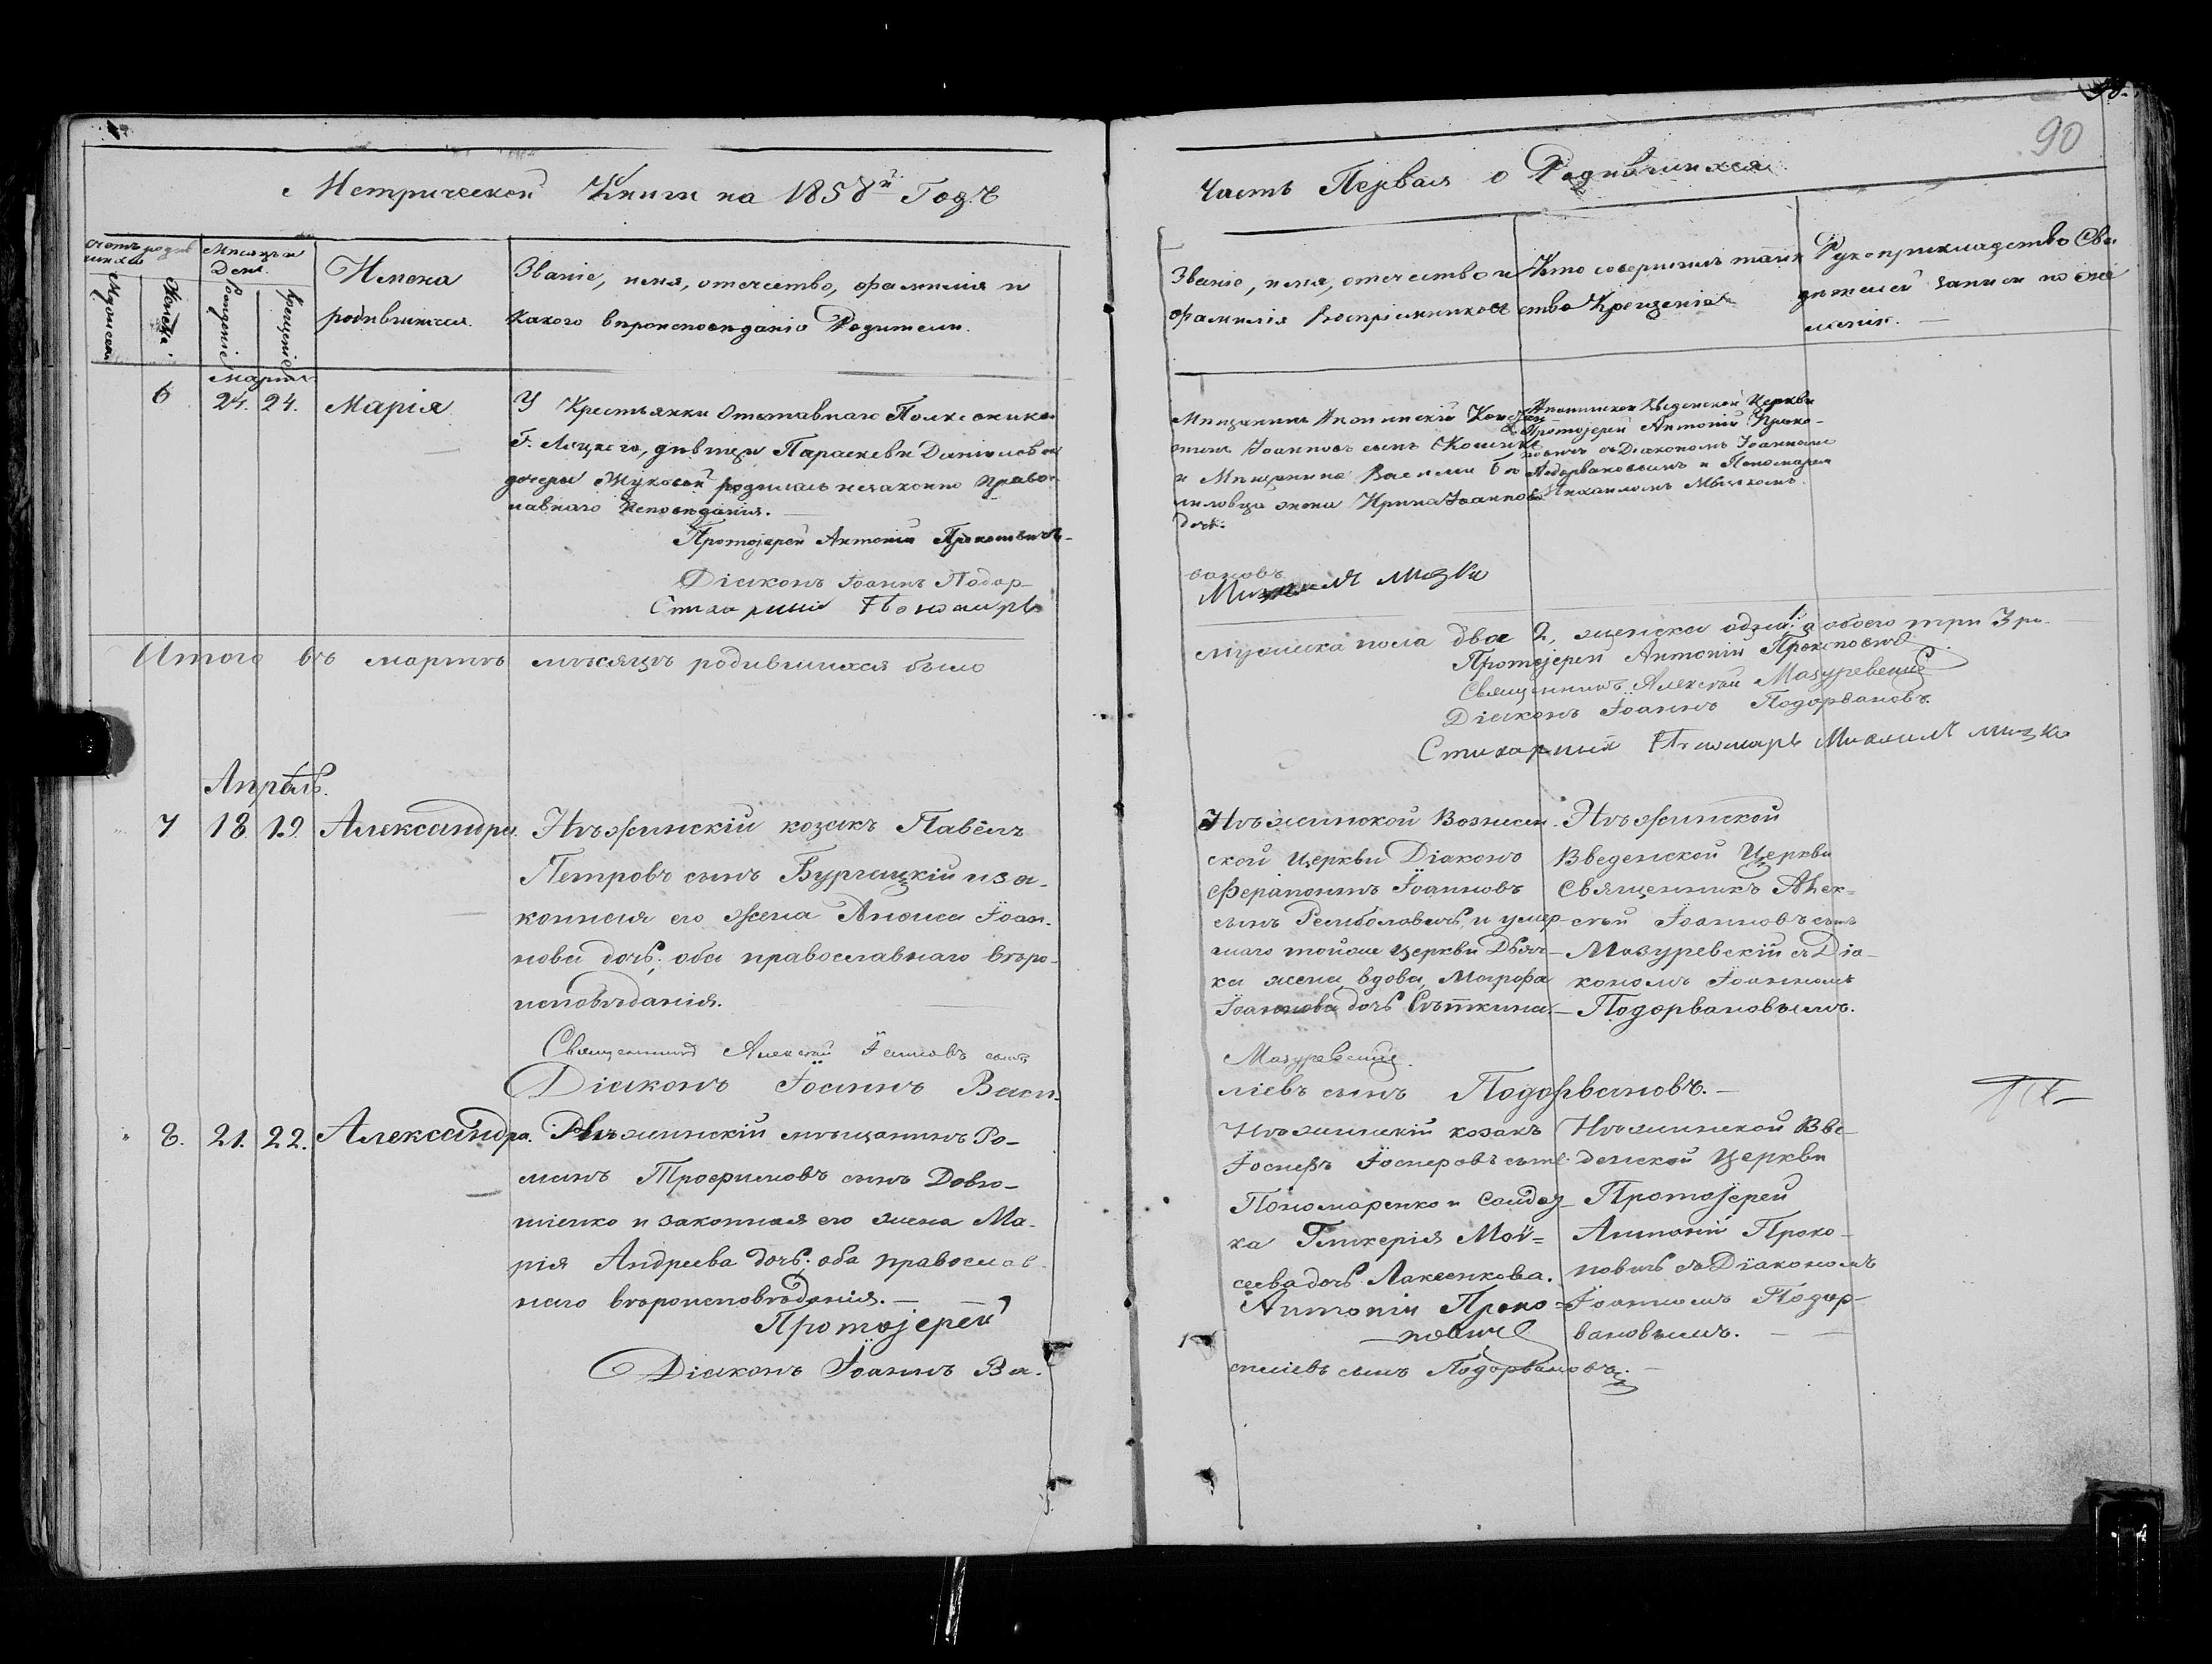 90
Метрической Книги на 1858й Годъ
Часть Первая о Родившихся
Счетъ родив
шихся
Мужеска
Женска.
Месяцъ и
День.
Рожденіе
Крещеніе
Имена
родившихся.
Званіе, имя, отечество, фамилія и
какого вероисповеданія Родители.
Званіе, имя, отечество и
фамилія воспріемниковъ
Кто совершилъ таин
ство Крещенія
Рукоприкладство Сви
детелей записи по же
ланію.
мартъ
6
24. 24.
Марія
У Крестьянки Отставнаго Полковника
Г. девицы Параскевы Даніиловой
дочери Жуковой родилась незаконно право
славнаго исповеданія.
Протоіерей Антоній Прокоповичъ
Діаконъ Іоаннъ Подор-
Стихарный Пономарь
Мещанинъ
Іоанновъ сынъ
и Мещанина Василія
жена Ирина Іоаннова
дочь.
Введенской Церкви
Протоіерей Антоній Проко-
повичъ съ Діакономъ Іоанномъ
Подорвановымъ и Пономаремъ
Михаиломъ
вановъ
Михаилъ
Итого въ мартѣ мѣсяцѣ родившихся было
мужеска пола двое 2, женска одна 1. а обоего три 3 ро-
Протоіерей Антоній Прокоповичъ
Священникъ Алексѣй Мазуревскій
Діаконъ Іоаннъ Подорвановъ.
Стихарный Пономарь Михаилъ
Апрѣль.
7
18. 19.
Александра.
Нѣжинскій козакъ Павелъ
Петровъ сынъ и за-
конная его жена Анна Іоан-
нова дочь; оба православнаго вѣро-
исповѣданія.
Священникъ Алексѣй Іоанновъ сынъ
Діаконъ Іоаннъ Васи-
Нѣжинской Вознесен-
ской Церкви Діаконъ
Ферапонтъ Іоанновъ
сынъ и умер-
шаго тойже Церкви Дьяч-
ка жена вдова, Марфа
Іоаннова дочь
Мазуревскій.
ліевъ сынъ Подорвановъ.-
Нѣжинской
Введенской Церкви
Священникъ Алек=
сѣй Іоанновъ сынъ
Мазуревскій съ Діа-
кономъ Іоанномъ
Подорвановымъ.
8.
21. 22.
Александра.
Нѣжинскій мѣщанинъ Ро-
манъ Трофимовъ сынъ Довго-
и законная его жена Ма-
рія Андреева дочь; оба православ-
наго вѣроисповѣданія.-
Протоіерей
Діаконъ Іоаннъ Ва-
Нѣжинскій козакъ
Іосифъ Іосифовъ сынъ
Пономаренко и
ка Гликерія Мой=
сеева дочь
Антоній Проко=
повичъ
силіевъ сынъ Подорвановъ.-
Нѣжинской Вве-
денской Церкви
Протоіерей
Антоній Проко-
повичъ съ Діакономъ
Іоанномъ Подор-
вановымъ.